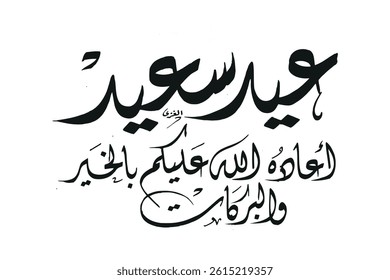 عيد سعيد
أعاده الله عليكم بالخَير
والبركات
shutterstock.com · 2615219357